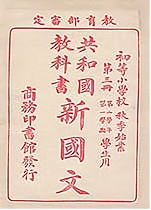 教育部審定
初等小學校 秋季始業
第三冊 第一學年 第一學期 學生用
共和國
教科書
新國文
商務印書館發行